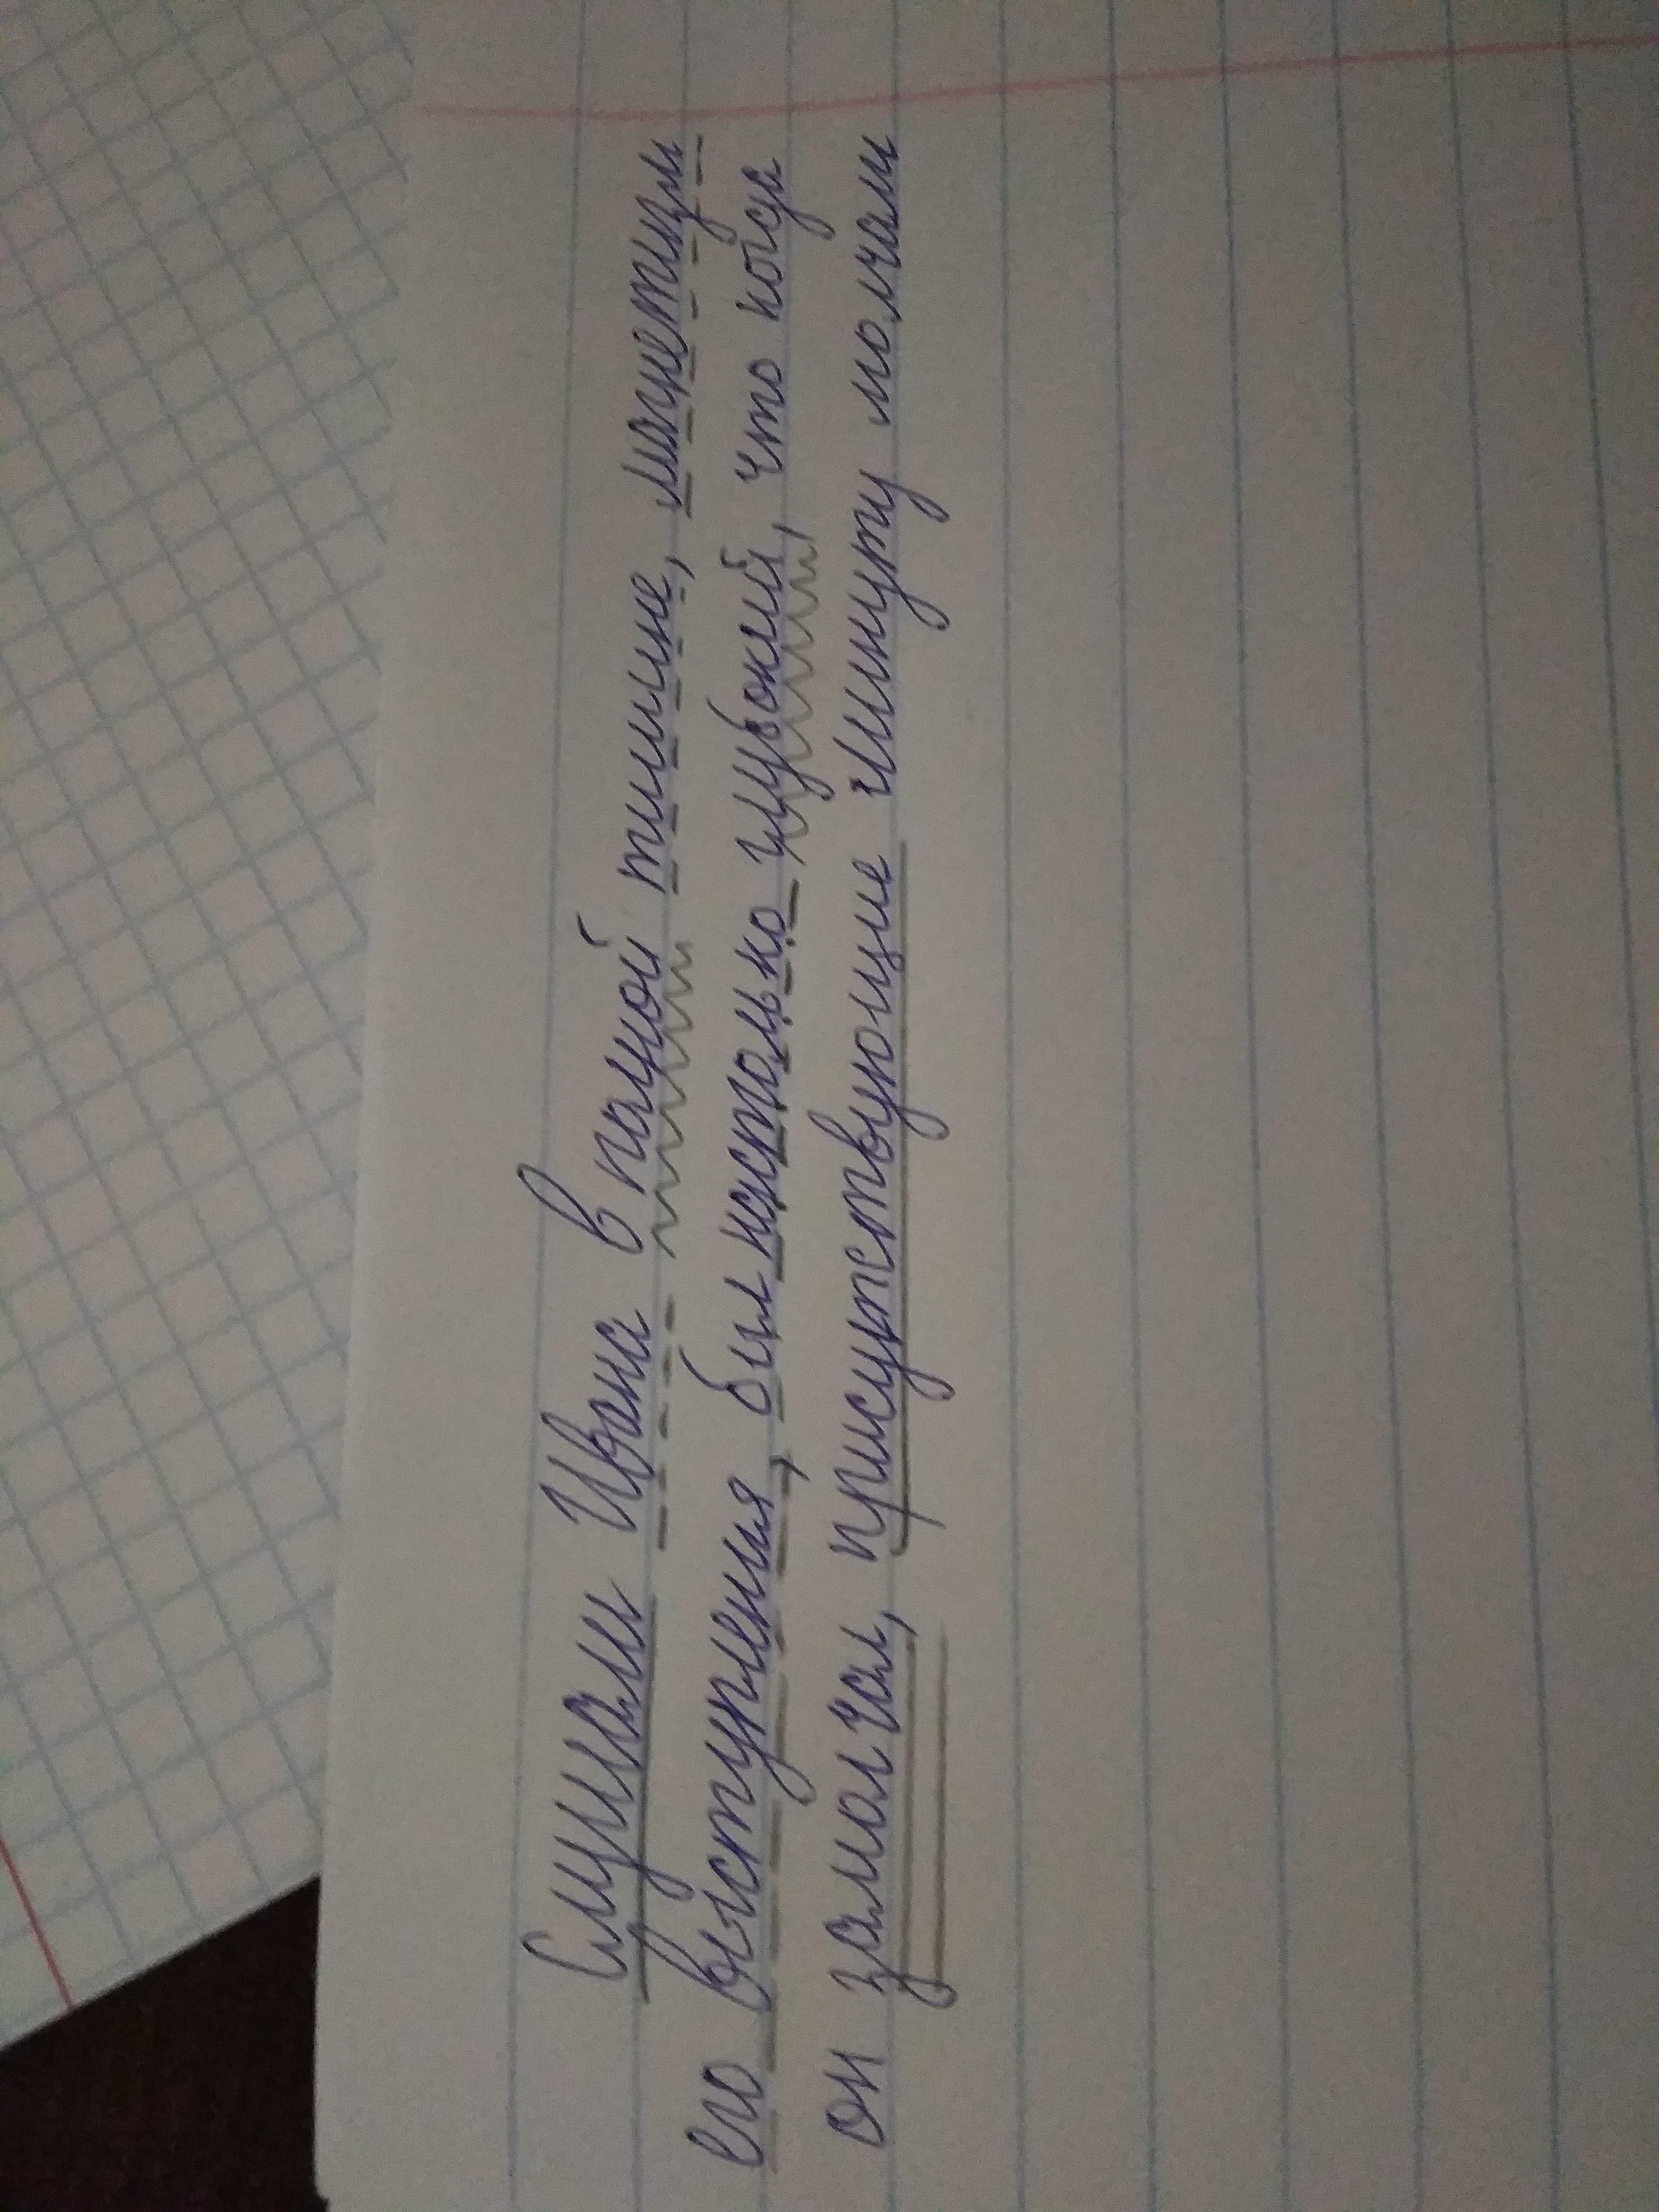 Слушали Ивана в полной тишине, магнетизм
его выступления, был настолько глубокий, что когда
он замолчал, присутствующие минуту молчали